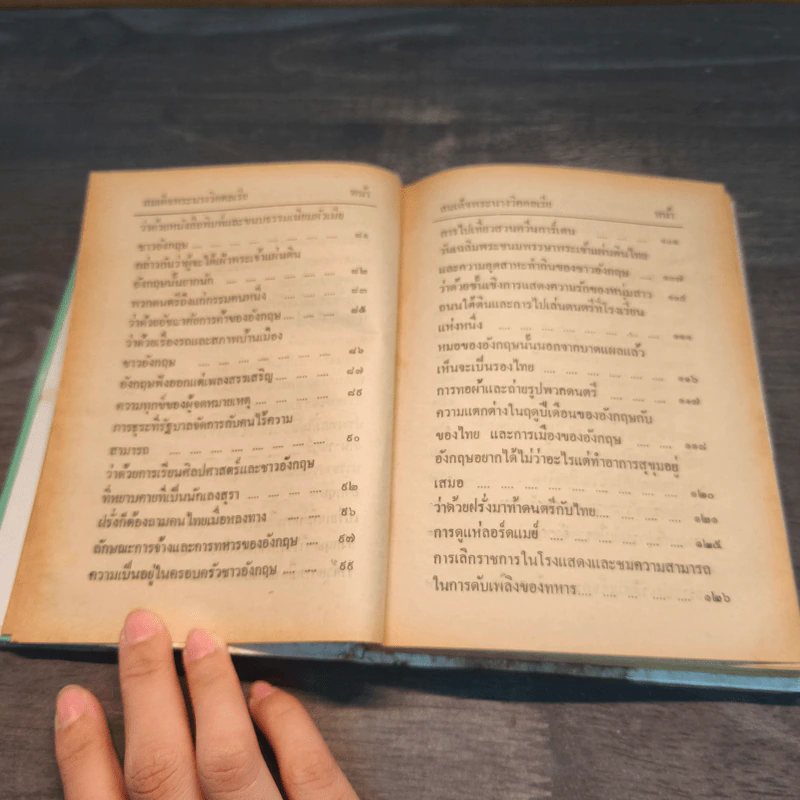 สมเด็จพระนางวิคตอเรีย หน้า
ว่าด้วยหนังสือพิมพ์และขนบธรรมเนียมผัวเมีย
ชาวอังกฤษ .... .... .... .... .... .... .... ๘๑
กล่าวกันว่าผู้จะได้เฝ้าพระเจ้าแผ่นดิน
อังกฤษนั้นยากนัก .... .... .... .... .... ๘๒
พวกดนตรีถึงแก่กรรมคนหนึ่ง .... .... .... ๘๓
ว่าด้วยอัชฌาศัยการค้าของอังกฤษ .... .... .... ๘๕
ว่าด้วยเรื่องรถและสภาพบ้านเมือง
ชาวอังกฤษ .... .... .... .... .... .... ๘๖
อังกฤษฟังออกแต่เพลงสรรเสริญ .... .... .... ๘๗
ความทุกข์ของผู้จดหมายเหตุ .... .... .... ๘๙
การธุระที่รัฐบาลจัดการกับคนไร้ความ
สามารถ .... .... .... .... .... .... .... ๙๐
ว่าด้วยการเรียนศิลปศาสตร์และชาวอังกฤษ
ที่หยาบคายที่เป็นนักเลงสุรา .... .... .... .... ๙๒
ฝรั่งก็ต้องถามคนไทยเมื่อหลงทาง .... .... ๙๖
ลักษณะการจ้างและการทหารของอังกฤษ .... .... ๙๗
ความเป็นอยู่ในครอบครัวชาวอังกฤษ .... .... ๙๙
สมเด็จพระนางวิคตอเรีย หน้า
การไปเที่ยวสวนควีนการ์เดน .... .... .... ๑๐๑
วันเฉลิมพระชนมพรรษาพระเจ้าแผ่นดินไทย
และความอุตสาหะทำกินของชาวอังกฤษ .... .... ๑๐๗
ว่าด้วยชั้นเชิงการแสดงความรักของหนุ่มสาว ๑๑๐
ถนนใต้ดินและการไปเล่นดนตรีที่โรงเรียน
แห่งหนึ่ง .... .... .... .... .... .... ๑๑๑
หมอของอังกฤษนั้นนอกจากบาดแผลแล้ว
เห็นจะเป็นรองไทย .... .... .... .... .... ๑๑๖
การทอผ้าและถ่ายรูปพวกดนตรี .... .... .... ๑๑๗
ความแตกต่างในฤดูปีเดือนของอังกฤษกับ
ของไทย และการเมืองของอังกฤษ .... .... ๑๑๘
อังกฤษอยากได้ไม่ว่าอะไรแต่ทำอาการสุขุมอยู่
เสมอ .... .... .... .... .... .... .... ๑๒๐
ว่าด้วยฝรั่งมาท้าดนตรีกับไทย.... .... .... .... ๑๒๑
การดูแห่ลอร์ดแมย์ .... .... .... .... .... ๑๒๕
การเลิกราชการในโรงแสดงและชมความสามารถ
ในการดับเพลิงของทหาร.... .... .... .... .... ๑๒๖